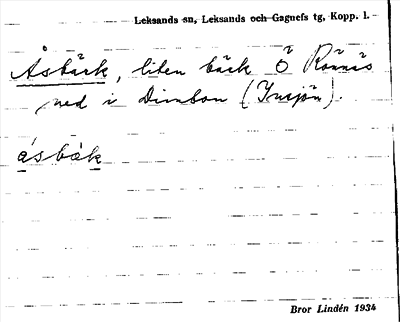 Leksands sn, Leksands och Gagnefs tg, Kopp. l.
Åsbäck, liten bäck Ö Rönnäs
ned i Dimbon (Insjön).
åsbäk
Bror Lindén 1934